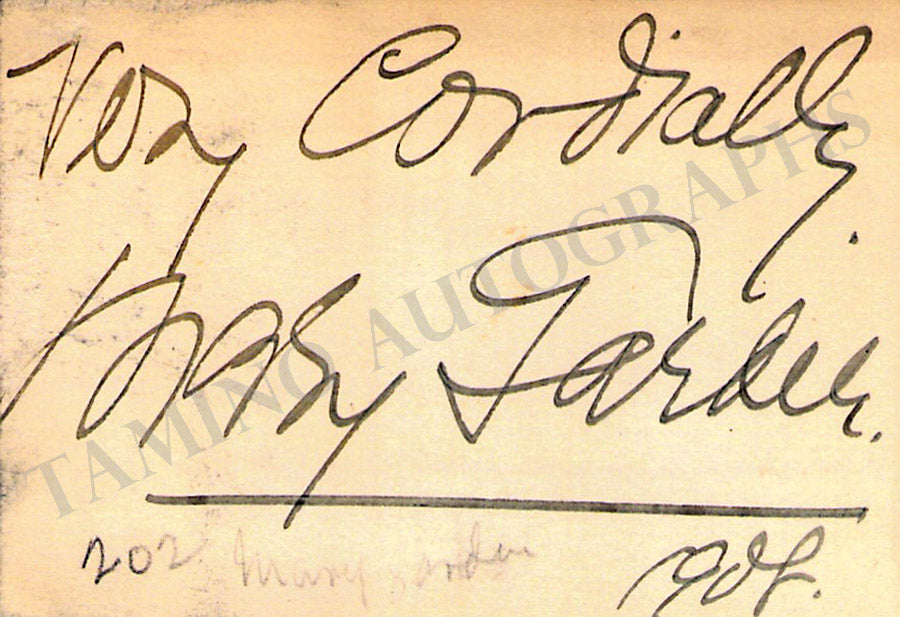 Very Cordially.
Mary Garden.
TAMINO AUTOGRAPHS
202 Mary Garden
1908.